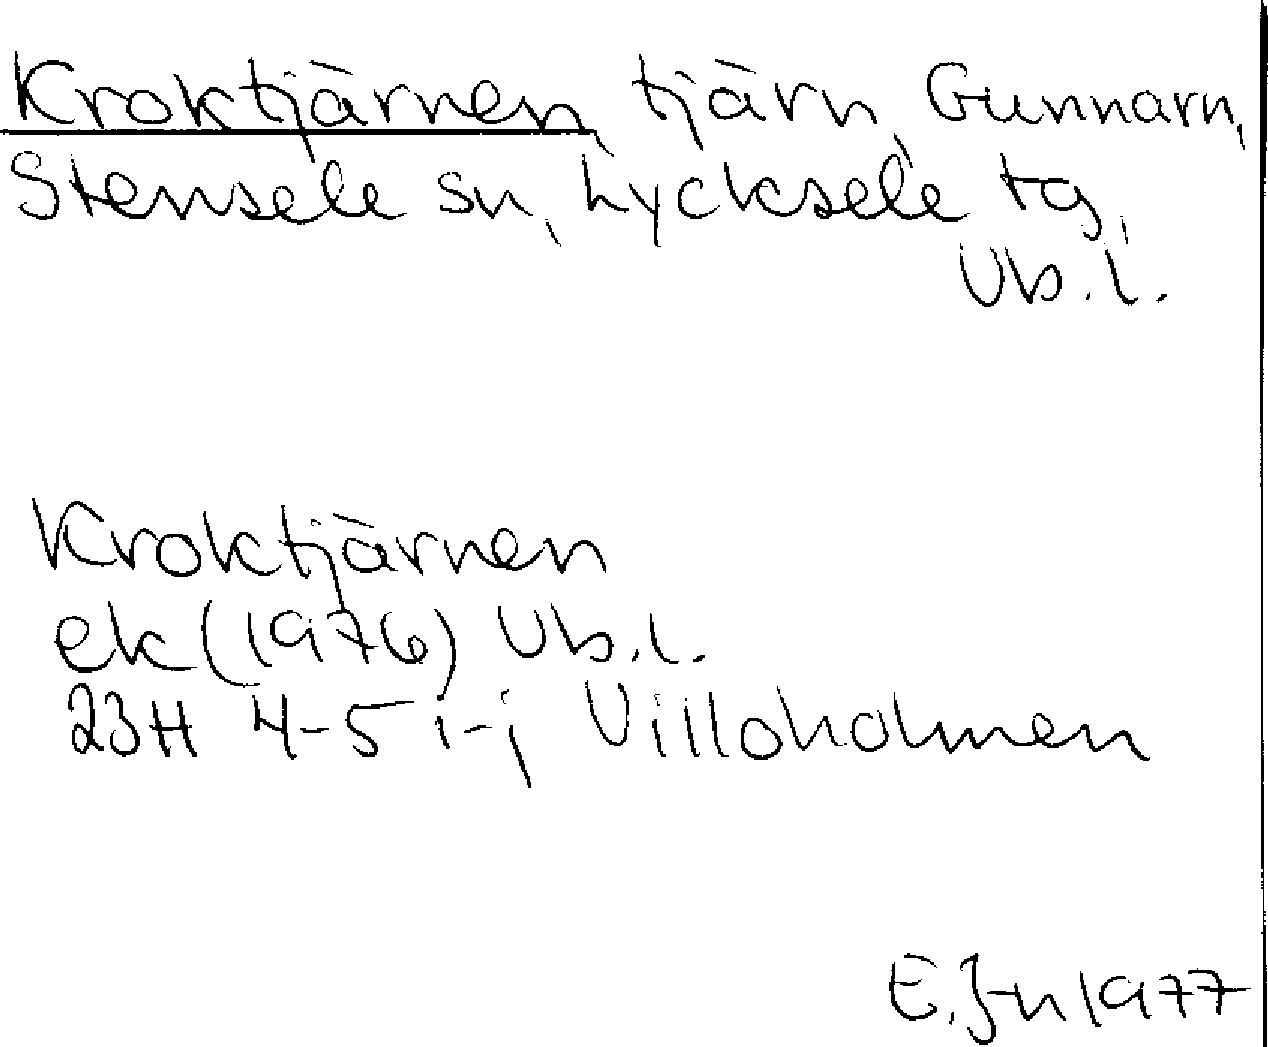 Kroktjärnen, tjärn, Gunnarn,
Stensele sn, Lycksele tg,
Vb.l.
Kroktjärnen
ek (1976) Vb.l.
23H 4-5 i-j Villoholmen
E.J-n 1977